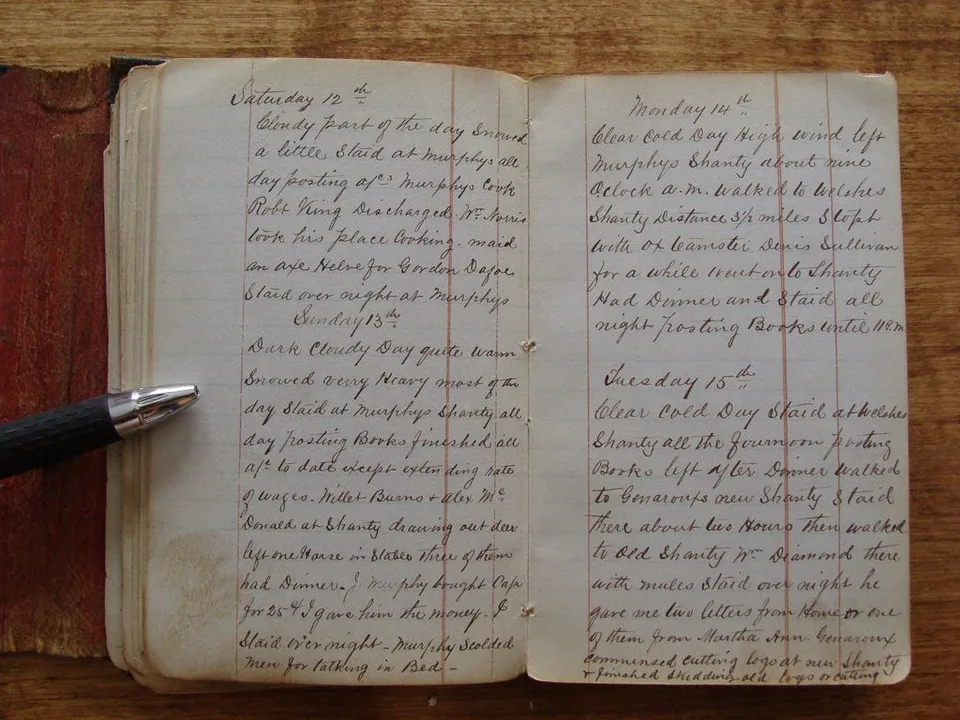 Saturday 12th
Cloudy part of the day Snowed
a little Staid at Murphys all
day posting a/cs Murphys Cook
Robt King Discharged. Wm Norris
took his place Cooking. maid
an axe Helve for Gordon Dafoe
Staid over night at Murphys
Sunday 13th
Dark Cloudy Day quite warm
Snowed verry Heavy most of the
day Staid at Murphys Shanty all
day posting Books finished all
a/c to date except extending rate
of wages. Willet Burns & Alex Mc
Donald at Shanty drawing out deer
left one Horse in Stable three of them
had Dinner. J. Murphy bought Cap
for 25 ¢ I gave him the money. I
Staid over night - Murphy Scolded
men for talking in Bed -
Monday 14th
Clear Cold Day High wind left
Murphys Shanty about nine
Oclock a.m. walked to Welshes
Shanty Distance miles Stopt
with ox teamster Denis Sullivan
for a while went on to Shanty
Had Dinner and Staid all
night posting Books until 11 P.M
Tuesday 15th
Clear Cold Day Staid at Welshes
Shanty all the fournoon posting
Books left after Dinner walked
to Genarouxs new Shanty Staid
there about two Hours then walked
to Old Shanty Wm Diamond there
with mules Staid over night he
gave me two letters from Home or one
of them from Martha Ann. Genaroux
commensed cutting logs at new Shanty
& finished Skidding old logs or cutting